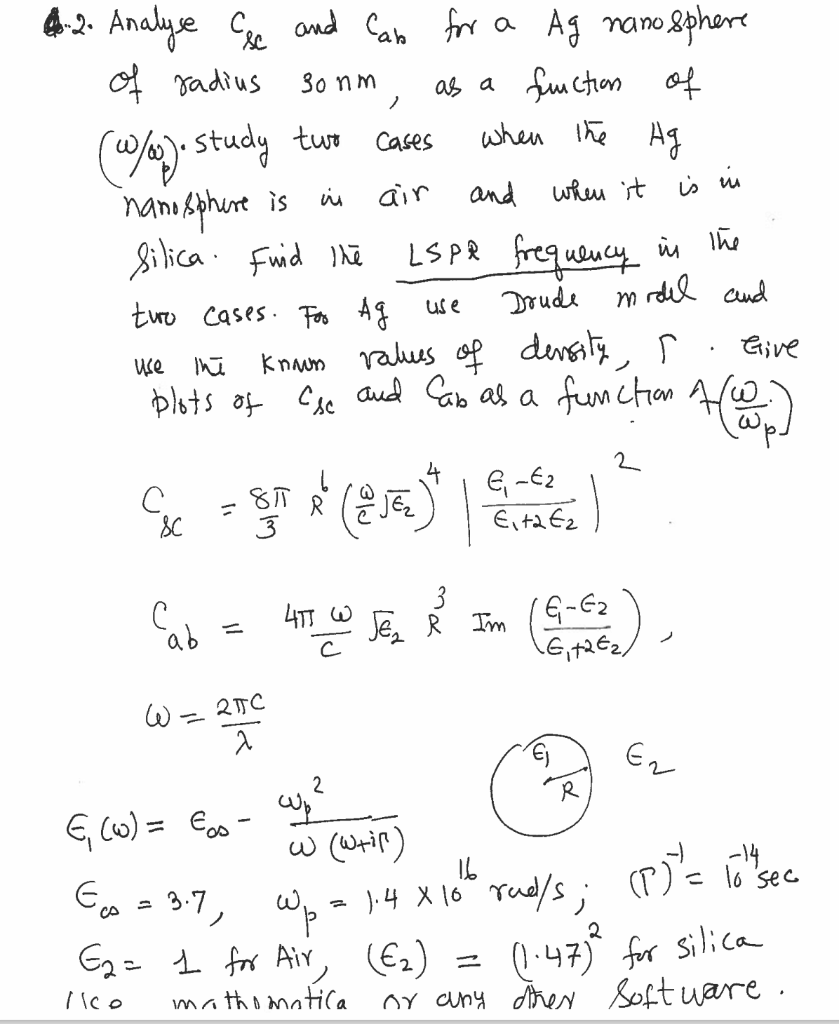 2. Analyse C_sc and C_ab for a Ag nanosphere
of radius 30 nm, as a function of
(ω/ω_p). study two cases when the Ag
nanosphere is in air and when it is in
Silica. Find the LSPR frequency in the
two cases. For Ag use Drude model and
use the known values of density, Γ. Give
plots of C_sc and C_ab as a function of (ω/ω_p)
C_sc = 8π/3 R^6 (ω/c √ε_2)^4 |(ε_1-ε_2)/(ε_1+2ε_2)|^2
C_ab = 4π ω/c √ε_2 R^3 Im ((ε_1-ε_2)/(ε_1+2ε_2)),
ω = 2πc/λ
ε_1 R ε_2
ε_1(ω) = ε_∞ - ω_p^2/(ω(ω+iΓ))
ε_∞ = 3.7, ω_p = 1.4 × 10^16 rad/s; (Γ)^-1 = 10^-14 sec
ε_2 = 1 for Air, (ε_2) = (1.47)^2 for silica
Use mathematica or any other Software.